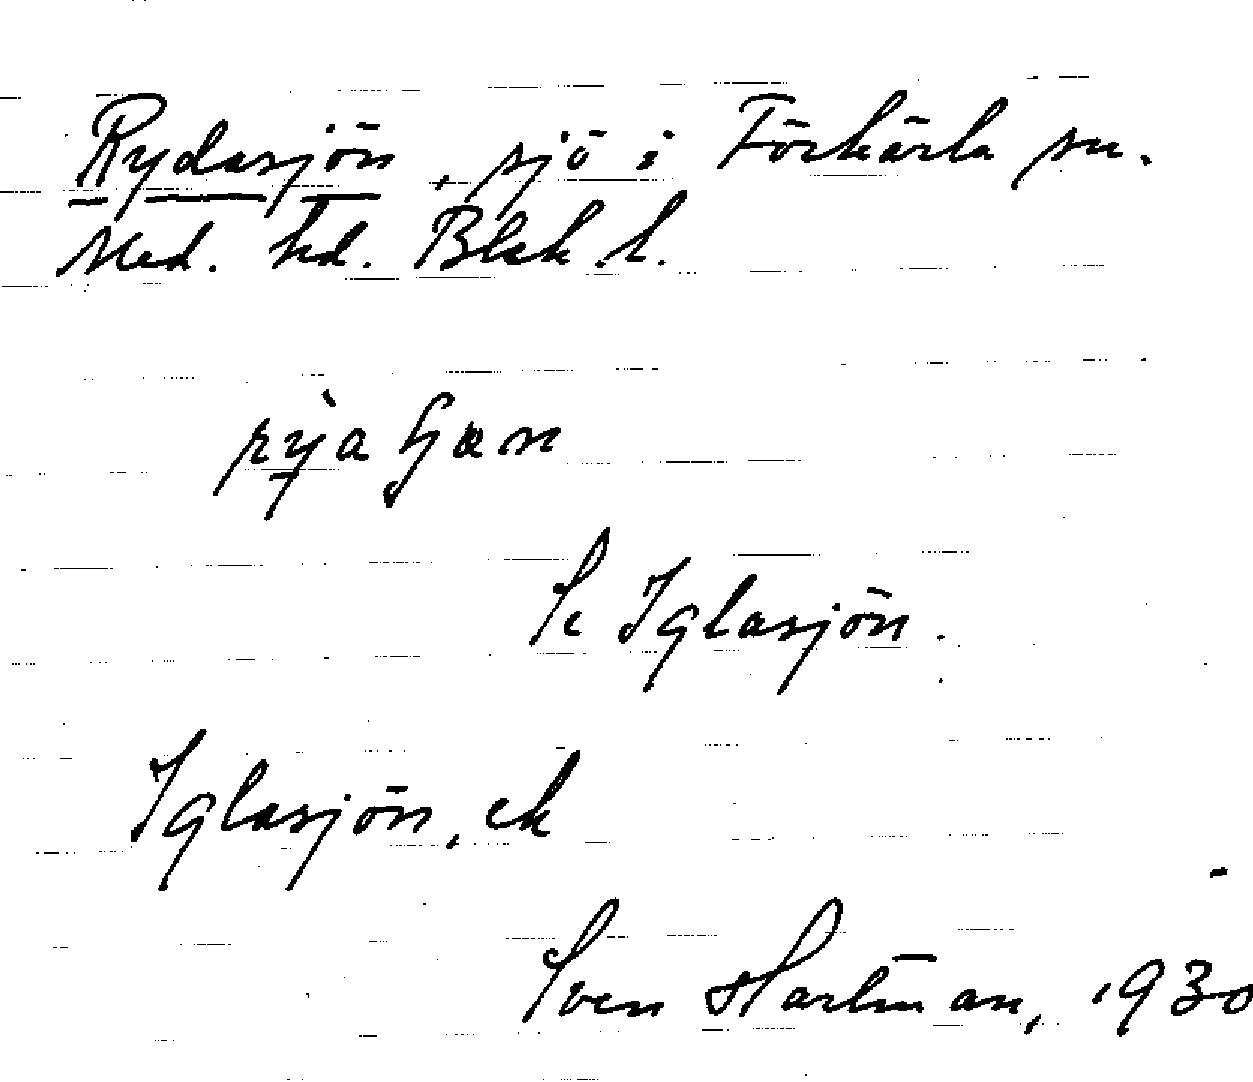 Rydasjön, sjö i Förkärla sn.
Med. hd. Blek. l.
Se Iglasjön.
Iglasjön, ek
Sven Hartman, 1930